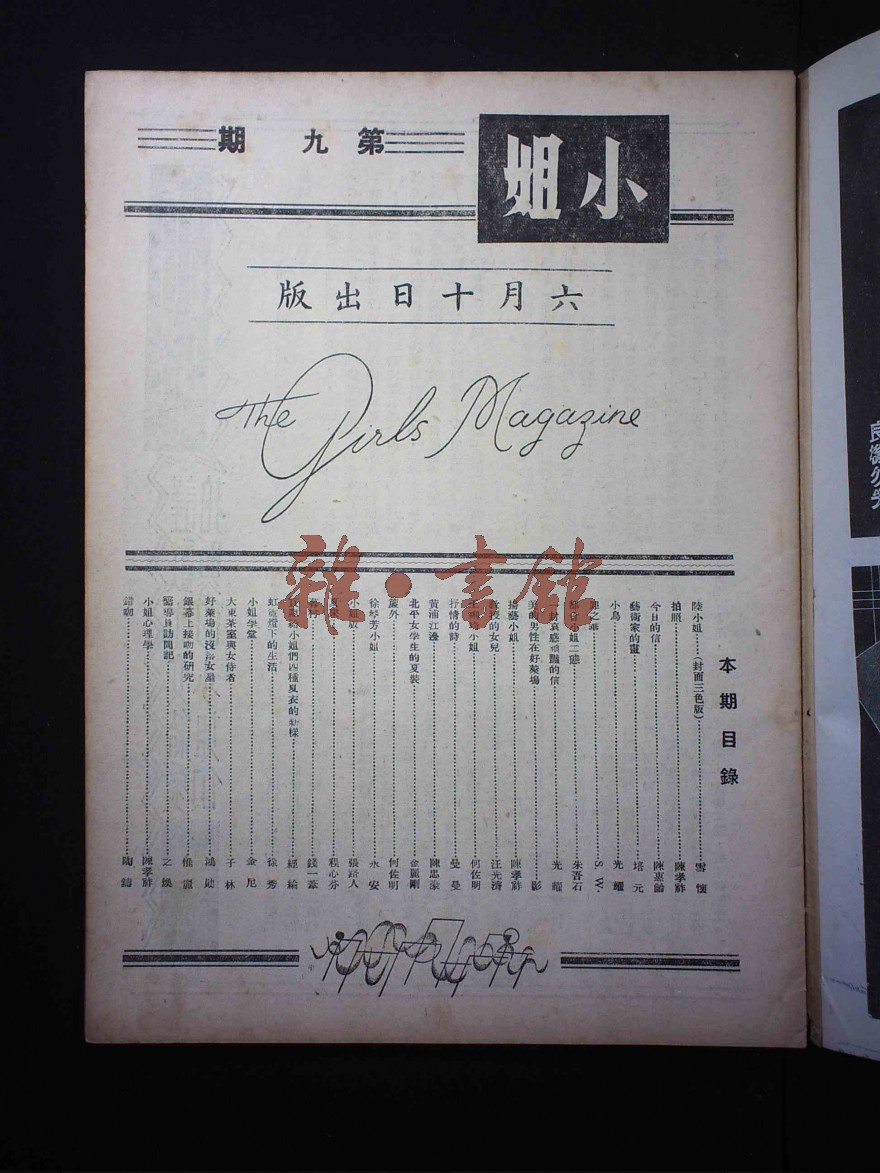 小姐
第九期
六月十日出版
The Girls Magazine
雜·書館
本期目錄
陸小姐……(封面三色版)……雪懷
拍照……陳孝祚
今日的信……陳惠齡
藝術家的畫……培元
小鳥……光耀
之華……S. W.
小姐二態……朱吾石
一封哀感頑豔的信……光耀
美的男性在好萊塢……影
藝小姐……陳孝祚
教授的女兒……汪光濤
小姐……何佐明
抒情的詩……曼曼
黃浦江邊……陳忠豪
北平女學生的夏裝……金麗剛
簾外……何佐明
徐琴芳小姐……永安
小姐……張路人
夏……程心芬
錢一葦
小姐們四種夏衣的新樣……經綸
虹霓燈下的生活……徐秀
小姐學堂……金尼
大東茶室與女侍者……子林
好萊塢的沒落女屋……鴻勛
銀幕上接吻的研究……惟
嚮導員訪問記……之煥
小姐心理學……陳孝祚
錯吻……陶鑄